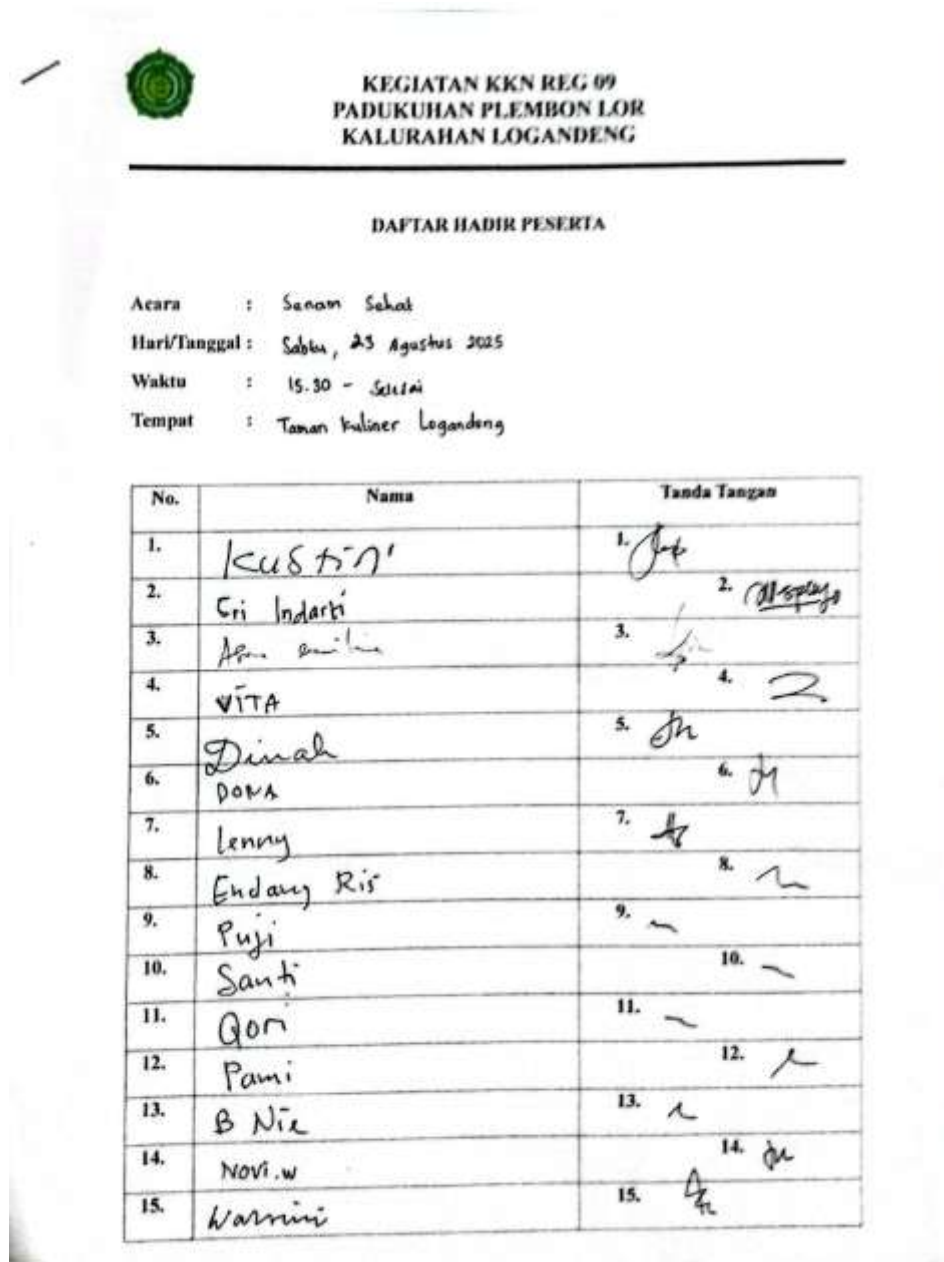 KEGIATAN KKN REG 09
PADUKUHAN PLEMBON LOR
KALURAHAN LOGANDENG
DAFTAR HADIR PESERTA
Acara : Senam Sehat
Hari/Tanggal : Sabtu, 23 Agustus 2025
Waktu : 15.30 - Selesai
Tempat : Taman Kuliner Logandeng
No. Nama Tanda Tangan
1. Kustini 1.
2. Sri Indarti 2.
3. 3.
4. VITA 4.
5. Dinah 5.
6. DONA 6.
7. Lenny 7.
8. Endang Ris 8.
9. Puji 9.
10. Santi 10.
11. Qori 11.
12. Pami 12.
13. B Nie 13.
14. Novi.w 14.
15. Warsini 15.